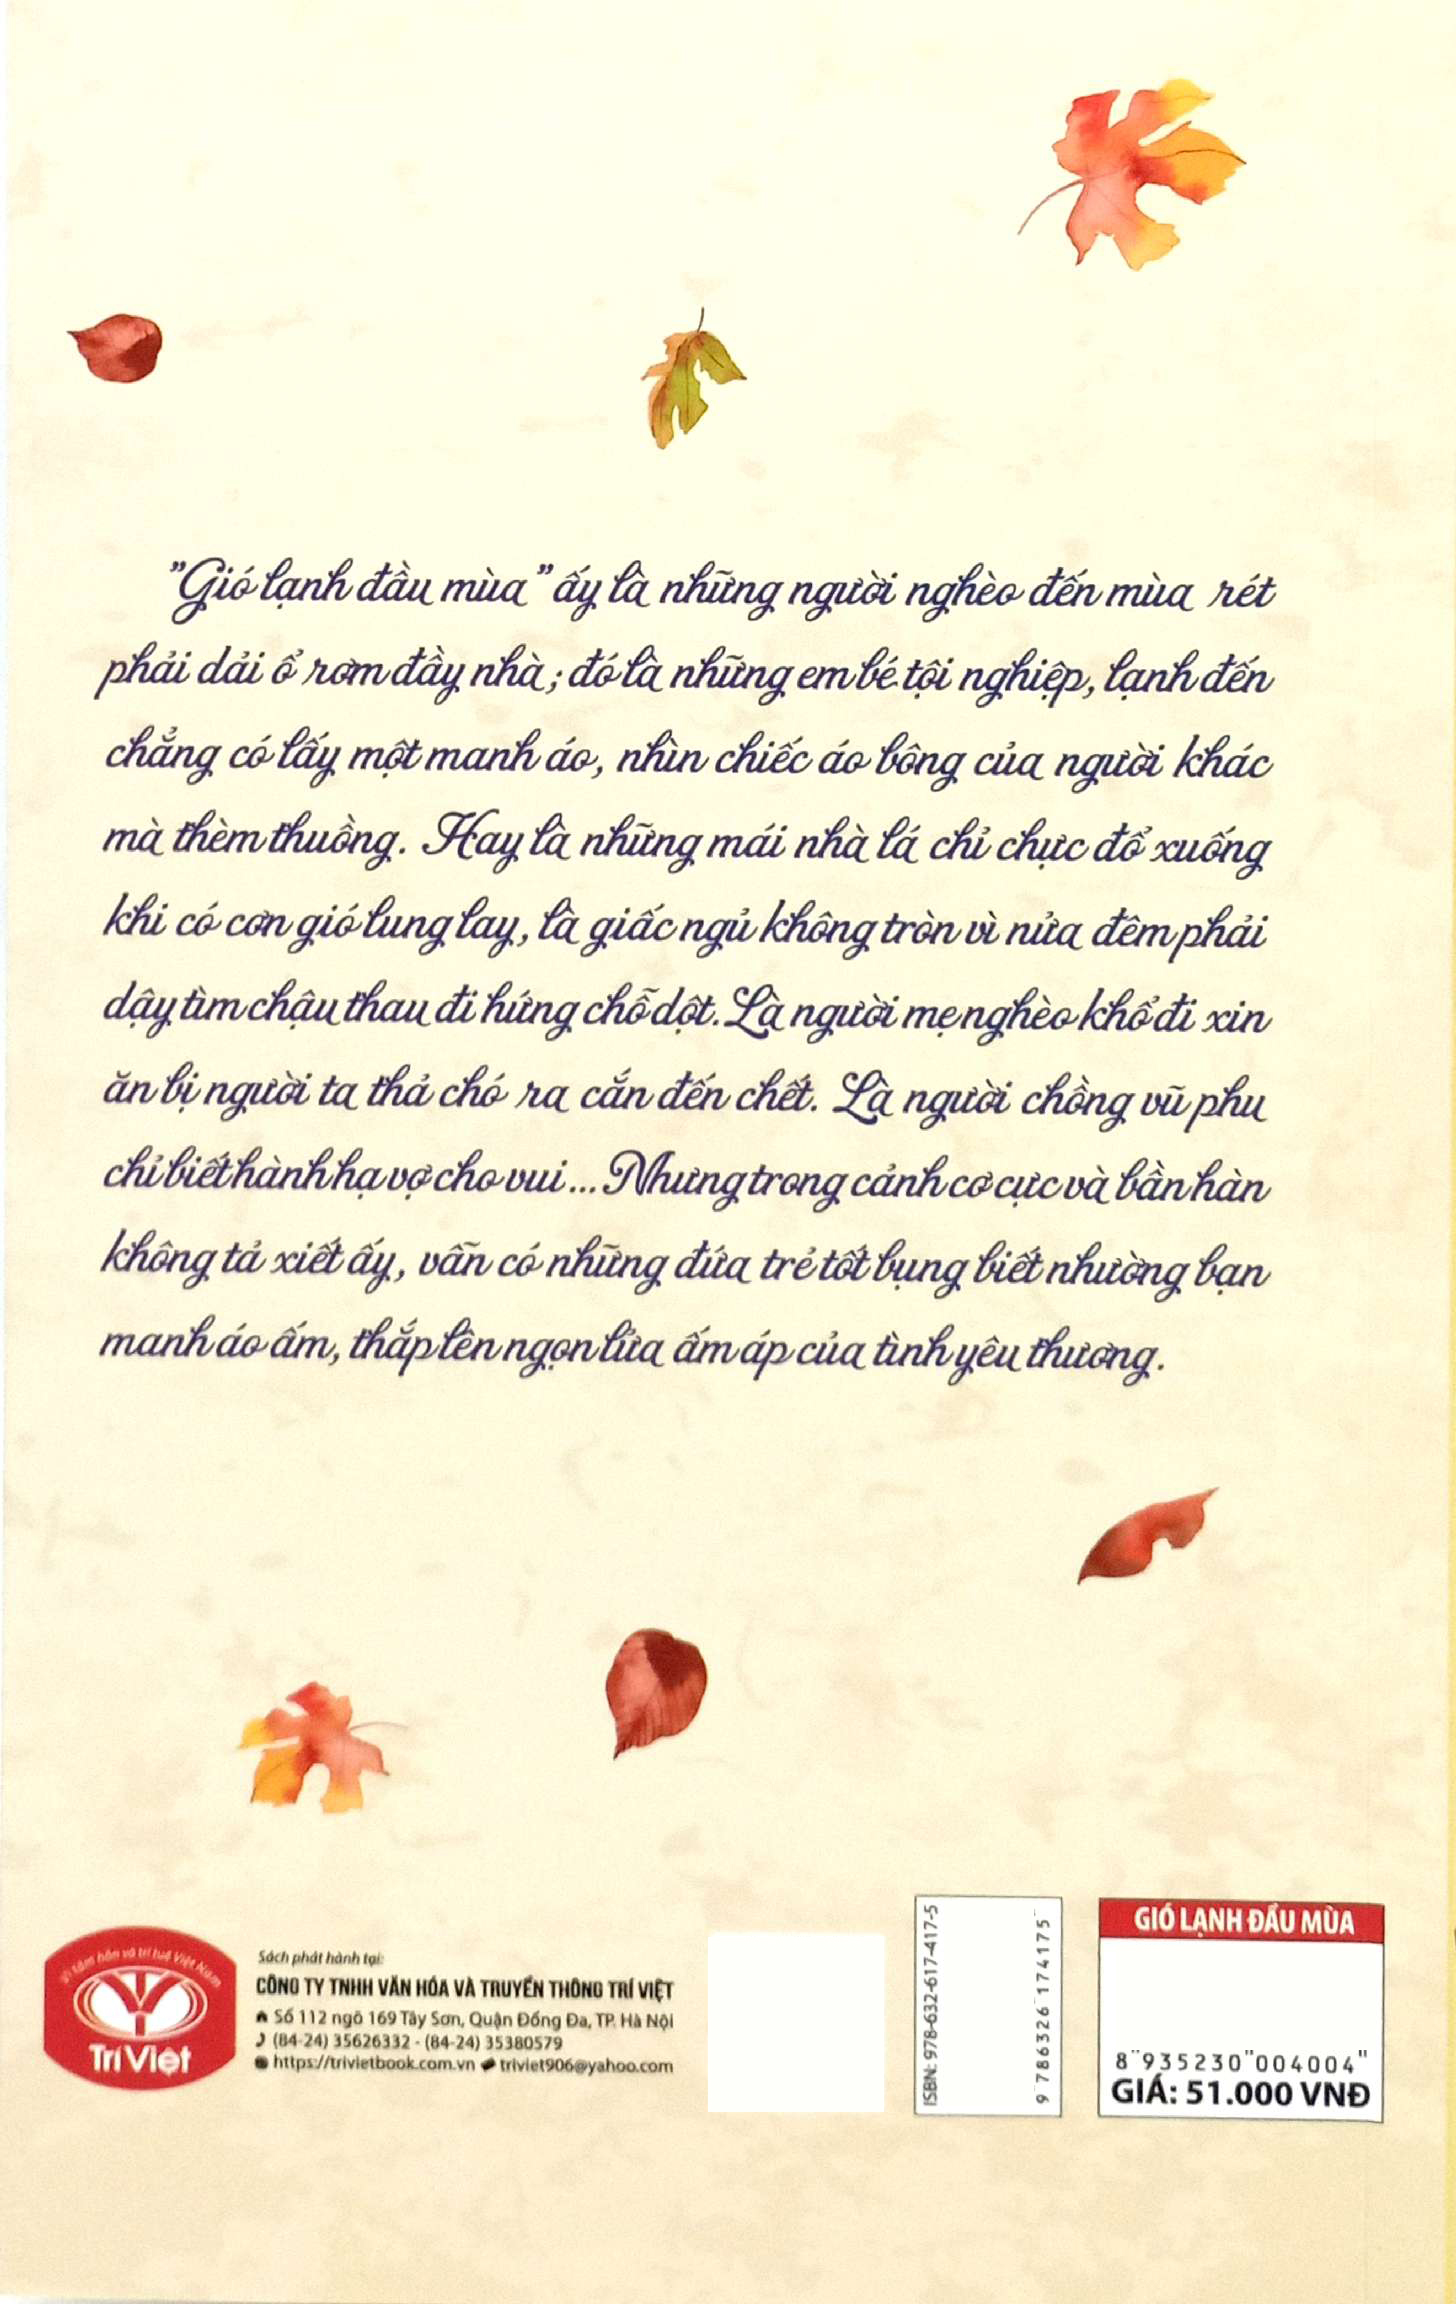 "Gió lạnh đầu mùa" ấy là những người nghèo đến mùa rét
phải dải ổ rơm đầy nhà; đó là những em bé tội nghiệp, lạnh đến
chẳng có lấy một manh áo, nhìn chiếc áo bông của người khác
mà thèm thuồng. Hay là những mái nhà lá chỉ chực đổ xuống
khi có cơn gió lung lay, là giấc ngủ không tròn vì nửa đêm phải
dậy tìm chậu thau đi hứng chỗ dột. Là người mẹ nghèo khổ đi xin
ăn bị người ta thả chó ra cắn đến chết. Là người chồng vũ phu
chỉ biết hành hạ vợ cho vui... Nhưng trong cảnh cơ cực và bần hàn
không tả xiết ấy, vẫn có những đứa trẻ tốt bụng biết nhường bạn
manh áo ấm, thắp lên ngọn lửa ấm áp của tình yêu thương.
Vì tâm hồn và trí tuệ Việt Nam
Trí Việt
Sách phát hành tại:
CÔNG TY TNHH VĂN HÓA VÀ TRUYỀN THÔNG TRÍ VIỆT
Số 112 ngõ 169 Tây Sơn, Quận Đống Đa, TP. Hà Nội
(84-24) 35626332 - (84-24) 35380579
https://trivietbook.com.vn triviet906@yahoo.com
ISBN: 978-632-617-417-5
9 786326 174175
GIÓ LẠNH ĐẦU MÙA
8"935230"004004"
GIÁ: 51.000 VNĐ